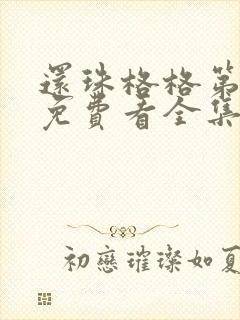 還珠格格第
免費看全集
初戀璀璨如夏